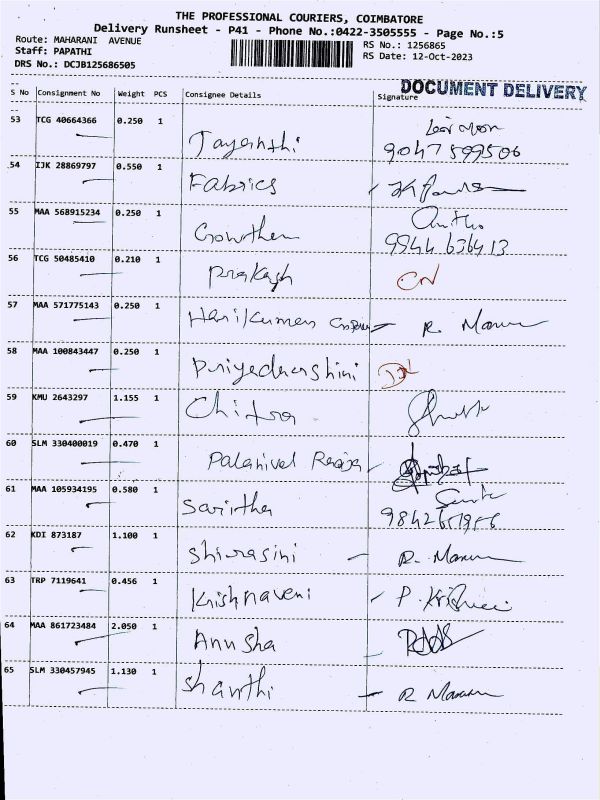 THE PROFESSIONAL COURIERS, COIMBATORE
Delivery Runsheet - P41 - Phone No.:0422-3505555 - Page No.:5
Route: MAHARANI AVENUE
RS No.: 1256865
Staff: PAPATHI
RS Date: 12-Oct-2023
DRS No.: DCJB125686505
DOCUMENT DELIVERY
S No Consignment No Weight PCS Consignee Details Signature
53 TCG 40664366 0.250 1 Jayanthi
9047599506
54 IJK 28869797 0.550 1 Fabrics
55 MAA 568915234 0.250 1 Gowthem
9944 636413
56 TCG 50485410 0.210 1 Prakash
57 MAA 571775143 0.250 1 Harikumar R.
58 MAA 100843447 0.250 1 Priyedharshini
59 KMU 2643297 1.155 1 Chitra
60 SLM 330400019 0.470 1 Palanivel
61 MAA 105934195 0.580 1 Saritha
62 KDI 873187 1.100 1 Shivasini R.
63 TRP 7119641 0.456 1 Krishnaveni P.
64 MAA 861723484 2.050 1 Anusha
65 SLM 330457945 1.130 1 Shanthi R